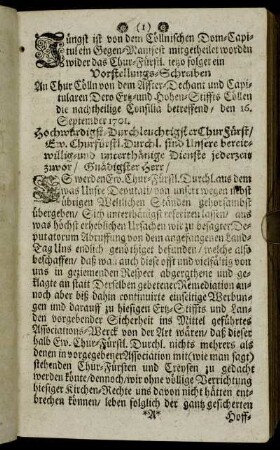 (1)
Jüngst ist von dem Cöllnischen Dom-Capi-
tul ein Gegen-Manifest mitgetheilet worden
wider das Chur-Fürstl. jetzo folget ein
Vorstellungs-Schreiben
An Chur Cölln von dem Affter-Dechant und Capi-
tularen Dero Ertz-und Hohen-Stiffts Cöllen
die nachtheilige Consilia betreffend, den 16.
September 1701.
Hochwürdigst-Durchleuchtigster Chur Fürst/
Ew. Churfürstl. Durchl. sind Unsere bereit-
willig-und unterthänige Dienste jederzeit
zuvor / Gnädigster Herr /
ES werden Ew. Chur-Fürstl. Durchl. aus dem
was Unsre Deputati, von unsert wegen nebst
übrigen Weltlichen Ständen gehorsambst
übergeben / Sich unterthänigst referiren lassen / aus
was höchst erheblichen Ursachen wir zu besagter De-
putatorum Abruffung von dem angefangenen Land-
Tag Uns endlich genöthiget befunden / welche also
beschaffen / daß wa auch diese offt und vielfältig von
uns in geziemenden Respect abgergthene und ge-
klagte an statt Derselben gebetener Remediation an-
noch aber biß dahin continuirte einseitige Werbun-
gen und darauff zu hiesigen Ertz-Stiffts und Lan-
den vorgebender Sicherheit ins Mittel geführtes
Associations-Werck von der Art wären / daß dieser
halb Ew. Chur-Fürstl. Durchl. nichts mehrers als
denen in vorgegebener Association mit (wie man sagt)
stehenden Chur-Fürsten und Creysen zu gedacht
werden könte / dennoch / wir ohne völlige Verrichtung
hiesiger Kirchen-Rechte uns davon nicht hätten ent-
brechen können / leben folglich der gantz gesicherten
*A* Hoff-